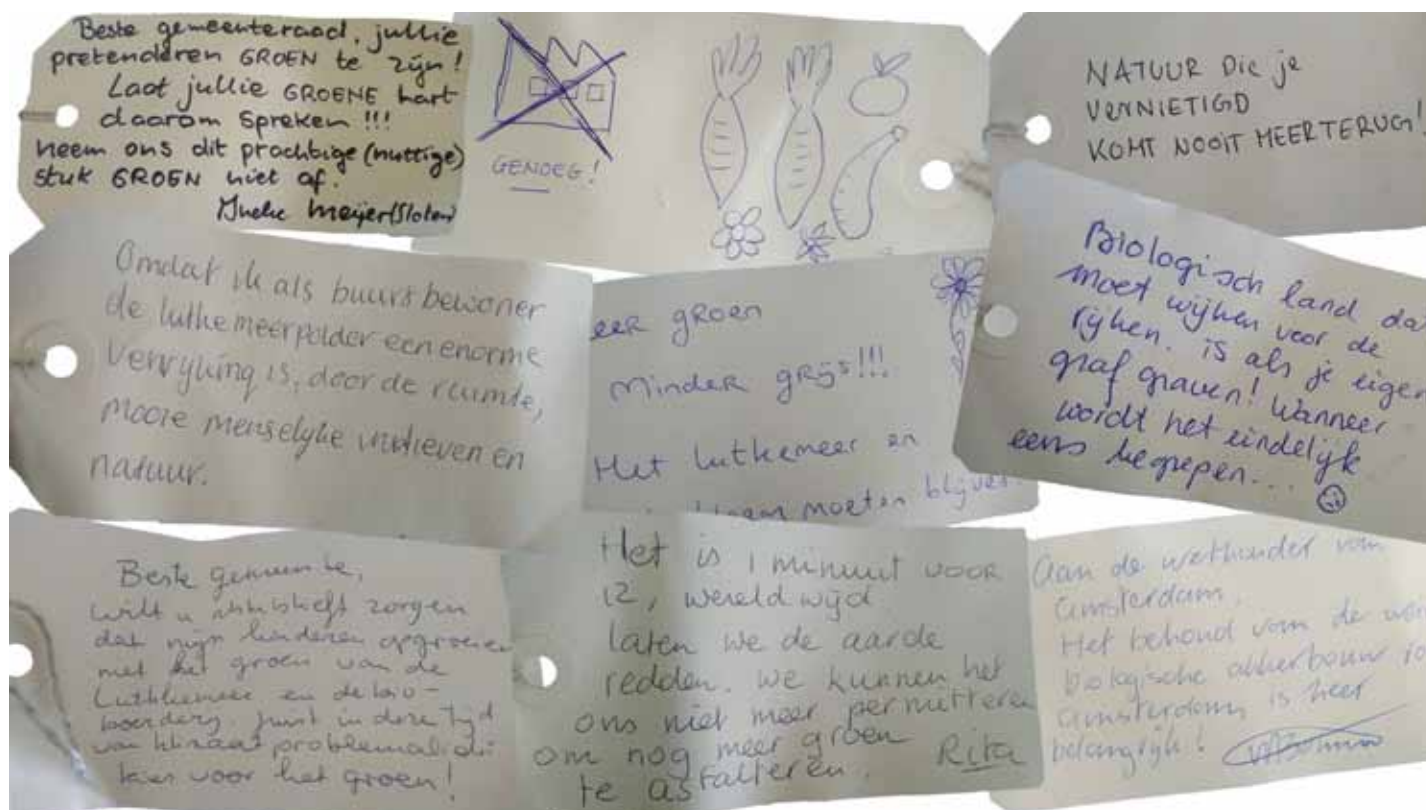 Beste gemeenteraad, jullie
pretenderen GROEN te zijn!
Laat jullie GROENE hart
daarom spreken !!!
neem ons dit prachtige (nuttige)
stuk GROEN niet af.
Meijer (Sloten)
GENOEG!
NATUUR Die je
VERNIETIGD
KOMT NOOIT MEER TERUG!
Omdat ik als buurtbewoner
de lutkemeerpolder een enorme
verrijking is, door de ruimte,
mooie menselijke initieven en
natuur.
eer groen
Minder grijs!!!
Het lutkemeer en
moeten blijven
Biologisch land dat
moet wijken voor de
rijken. is als je eigen
graf graven! Wanneer
wordt het eindelijk
eens begrepen...
Beste gemeente,
wilt u zorgen
dat mijn kinderen opgroeien
met het groen van de
Lutkemeer en de bio-
boerderij. Juist in deze tijd
van klimaatproblematiek
kies voor het groen!
Het is 1 minuut voor
12, wereldwijd
laten we de aarde
redden. We kunnen het
ons niet meer permitteren
om nog meer groen
te asfalteren. Rita
Aan de wethouder van
Amsterdam.
Het behoud van de
biologische akkerbouw in
Amsterdam is heer
belangrijk!